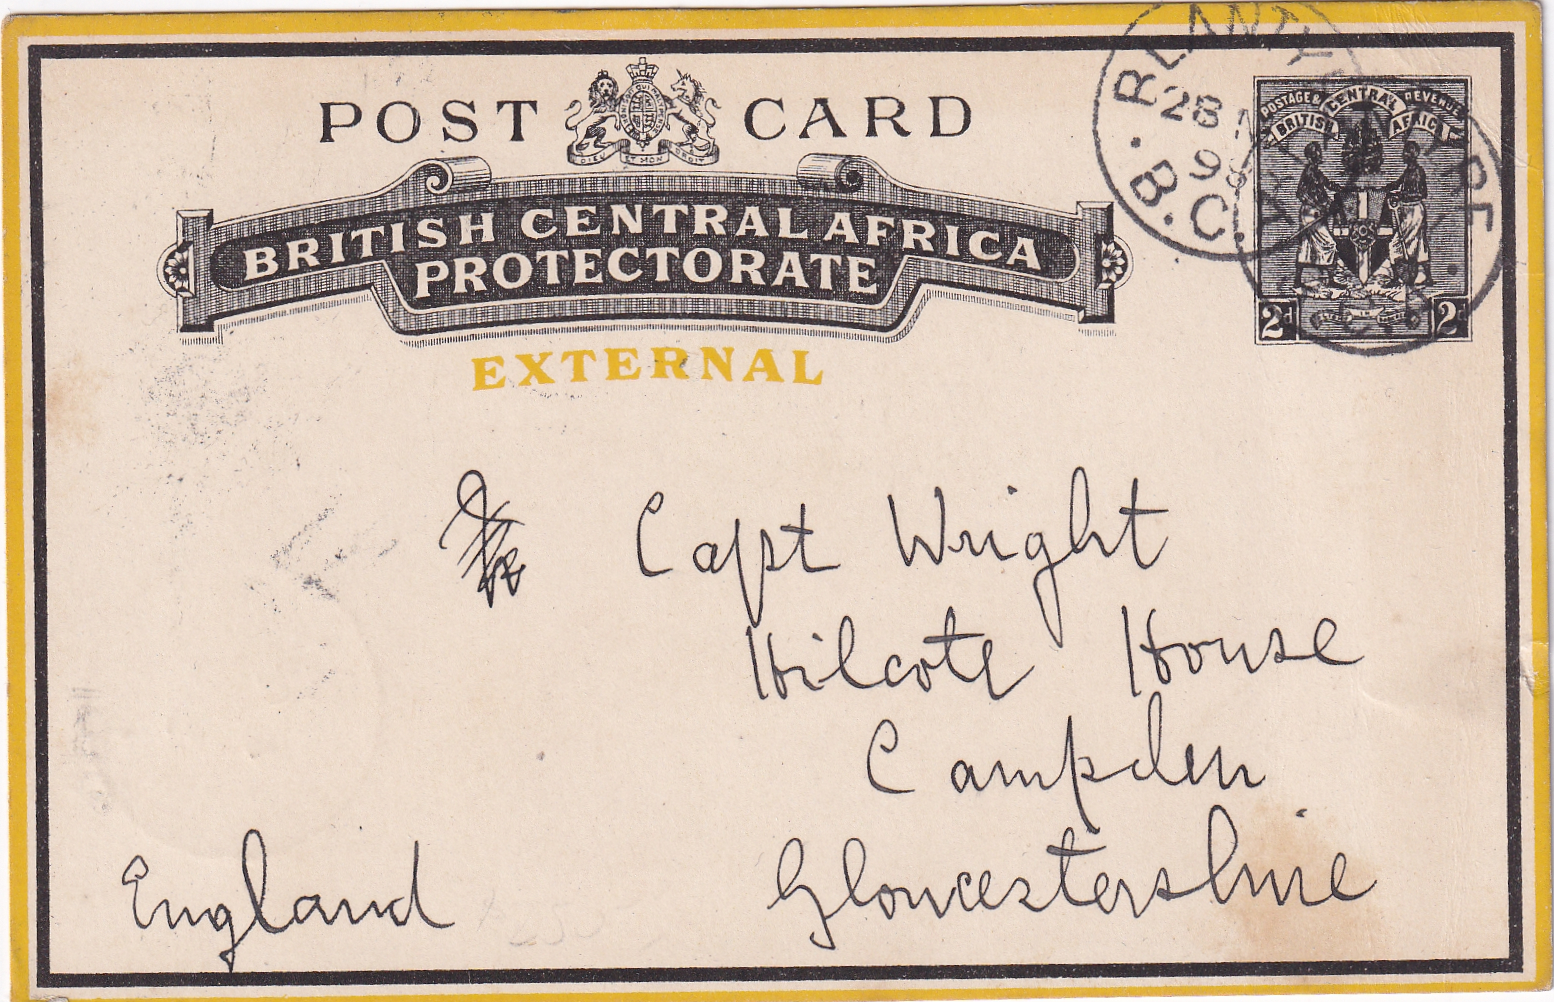 POST CARD
DIEU ET MON DROIT
BRITISH CENTRAL AFRICA
PROTECTORATE
EXTERNAL
BLANTYRE
28
98
B.C.
POSTAGE & REVENUE
BRITISH CENTRAL AFRICA
2d 2d
Capt Wright
Hilcote House
Campden
Gloucestershire
England